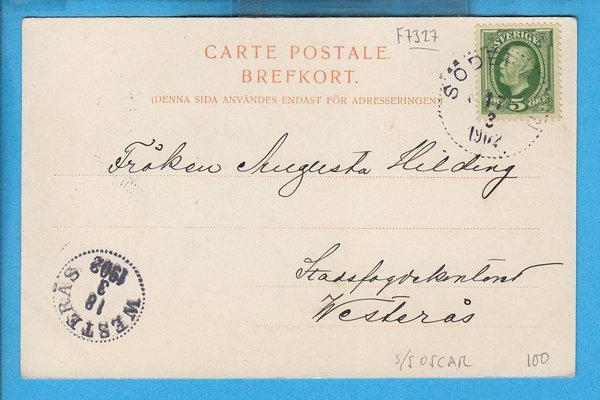 F7327
CARTE POSTALE.
BREFKORT.
(DENNA SIDA ANVÄNDES ENDAST FÖR ADRESSERINGEN
SVERIGE
5
3
1902
Fröken Augusta Hilding
Stadsfogdekontoret
Westerås
WESTERÅS
18
3
1902
S/S OSCAR
100